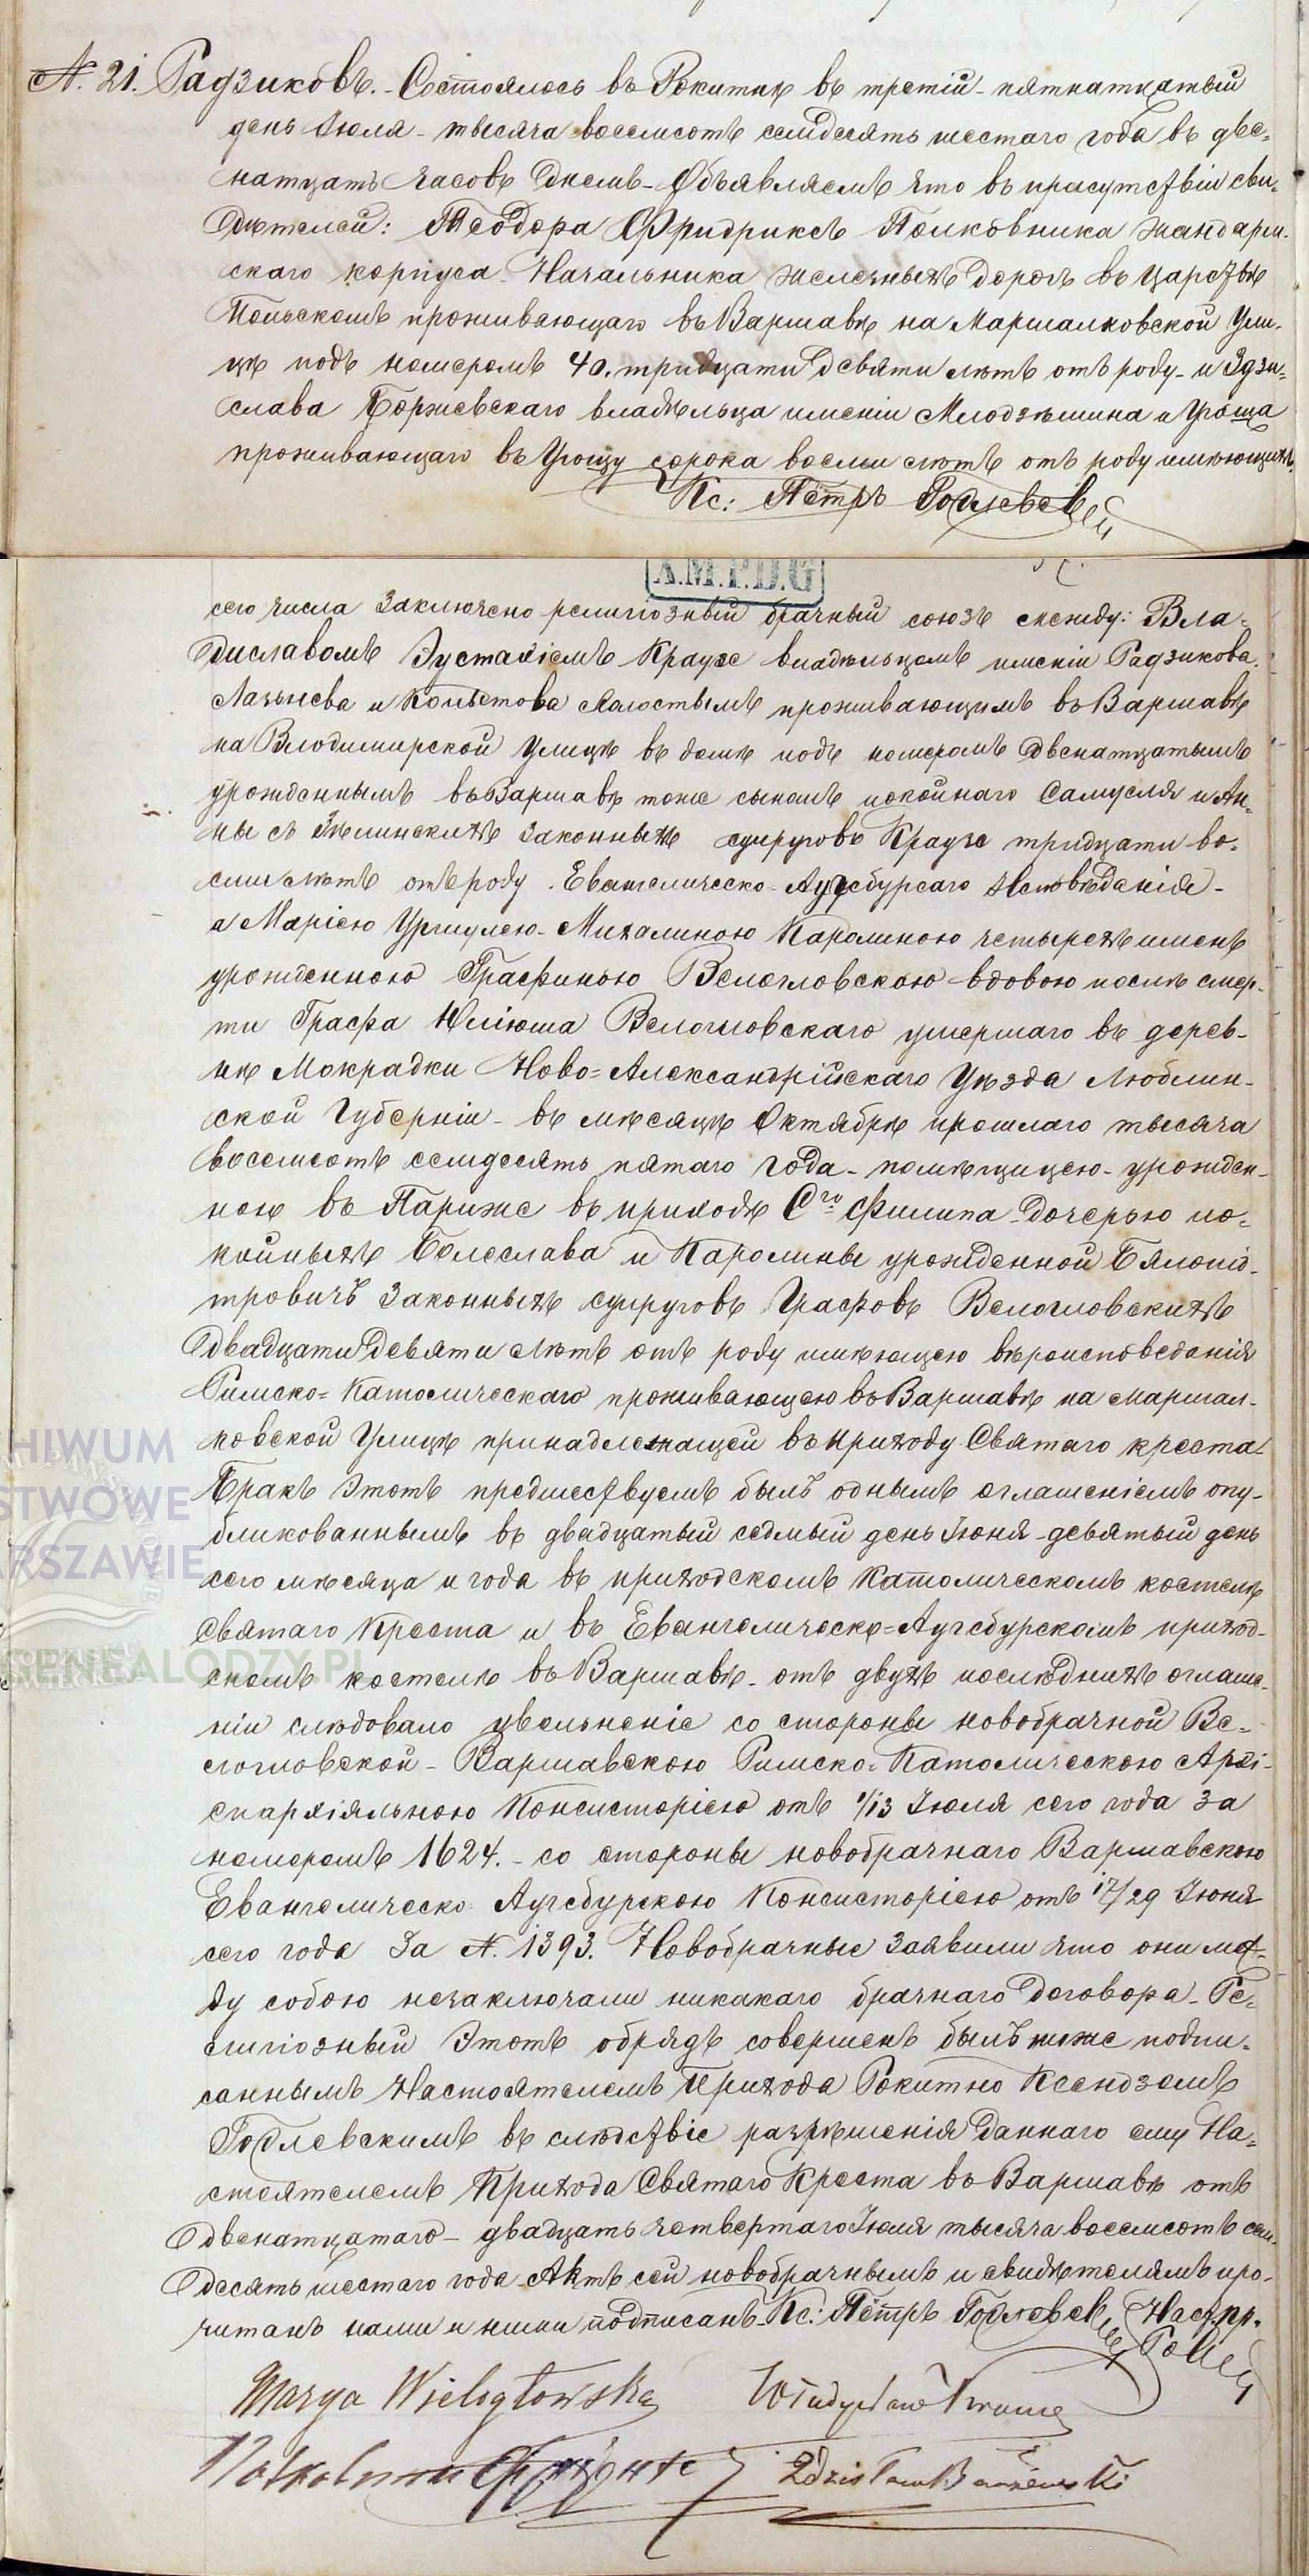 N. 21. Радзиковъ. - Состоялось въ Рокитнѣ въ третій - пятнатцатый
день Іюля - тысяча восемсотъ семдесять шестаго года въ две-
натцать часовъ Днемъ - Объявляемъ что въ присутствіи сви-
дѣтелей: Теодора Фридриксъ Полковника жандарм-
скаго корпуса Начальника желѣзныхъ дорогъ въ Царствѣ
Польскомъ проживающаго въ Варшавѣ на Маршалковской Ули-
цѣ подъ номеромъ 40. тридцати девяти лѣтъ отъ роду - и Здзи-
слава Боржевскаго владѣльца имѣніи Млодзѣшина и
проживающаго въ сорока восьми лѣтъ отъ роду имѣющихъ.
Кс: Пётръ Годлевскій
A.M.P.D.G
сего числа заключено религіозный брачный союзъ между: Вла-
диславомъ Эустахіемъ Краузе владѣльцемъ имѣніи Радзикова
и холостымъ проживающимъ въ Варшавѣ
на Влодимирской Улицѣ въ домѣ подъ номеромъ двенатцатымъ
урожденнымъ въ Варшавѣ тоже сыномъ покойнаго Самуеля и Ан-
ны съ законныхъ супруговъ Краузе тридцати во-
сми лѣтъ отъ роду. Евангелическо-Аугсбурсаго Исповѣданія -
а Маріею Уршулею - Михалиною Каролиною четырехъ именъ
урожденною Графинью Велогловскою - вдовою послѣ смер-
ти Графа Юліюша Велогловскаго умершаго въ дерев-
нѣ Мокрадки Ново-Александрійскаго Уѣзда Люблин-
ской Губерніи - въ мѣсяцѣ Октябрѣ прошлаго тысяча
восемсотъ семдесять пятаго года - помѣщицею - урожден-
ною въ Парижѣ въ приходѣ Сго Филипа - дочерью по-
койныхъ Болеслава и Каролины урожденной Бялопіо-
тровичъ законныхъ супруговъ Графовъ Велогловскихъ
двадцати девяти лѣтъ отъ роду имѣющею вѣроисповеданія
Римско-Католическаго проживающею въ Варшавѣ на Маршал-
ковской Улицѣ принадлежащей въ приходу Святаго креста -
Бракъ этотъ предшествуемъ былъ однымъ оглашеніемъ опу-
бликованнымъ въ двадцатый седмый день Іюня - девятый день
сего мѣсяца и года въ приходскомъ Католическомъ костелѣ
Святаго Креста и въ Евангелическо-Аугсбурскомъ приход-
скомъ костелѣ въ Варшавѣ - отъ двухъ послѣднихъ оглаше-
ніи слѣдовало увольненіе со стороны новобрачной Ве-
логловской - Варшавскою Римско-Католическою Архі-
епархіяльною Консисторіею отъ 1/13 Іюля сего года за
номеромъ 1624. - со стороны новобрачнаго Варшавскою
Евангелическо Аугсбурскою Консисторіею отъ 17/29 Іюня
сего года за N. 1393. Новобрачные заявили что они меж-
ду собою незаключали никакаго брачнаго договора - Ре-
лигіозный этотъ обрядъ совершенъ былъ ниже подпи-
саннымъ Настоятелемъ Прихода Рокитно Ксендземъ
Годлевскимъ въ слѣдствіе разрѣшенія даннаго ему На-
стоятелемъ Прихода Святаго Креста въ Варшавѣ отъ
двенатцатаго - двадцать четвертаго Іюля тысяча восемсотъ сем-
десять шестаго года Актъ сей новобрачнымъ и свидѣтелямъ про-
читанъ нами и ними подписанъ - Кс: Пётръ Годлевскій Наст. пр.
Marya Wielogłowska Władysław Krause
Zdzisław Borżewski
HIWUM
STWOWE
ARSZAWIE
GENEALODZY.PL